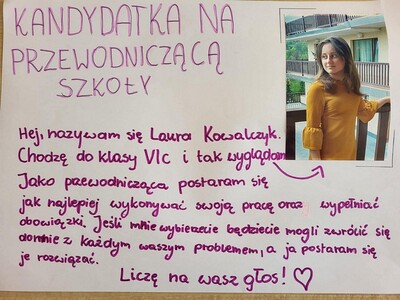 KANDYDATKA NA
PRZEWODNICZĄCĄ
SZKOŁY
Hej, nazywam się Laura Kowalczyk.
Chodzę do klasy VIc i tak wyglądam
Jako przewodnicząca postaram się
jak najlepiej wykonywać swoją pracę oraz wypełniać
obowiązki. Jeśli mnie wybierzecie będziecie mogli zwrócić się
do mnie z każdym waszym problemem, a ja postaram się
je rozwiązać.
Liczę na wasz głos! ♡